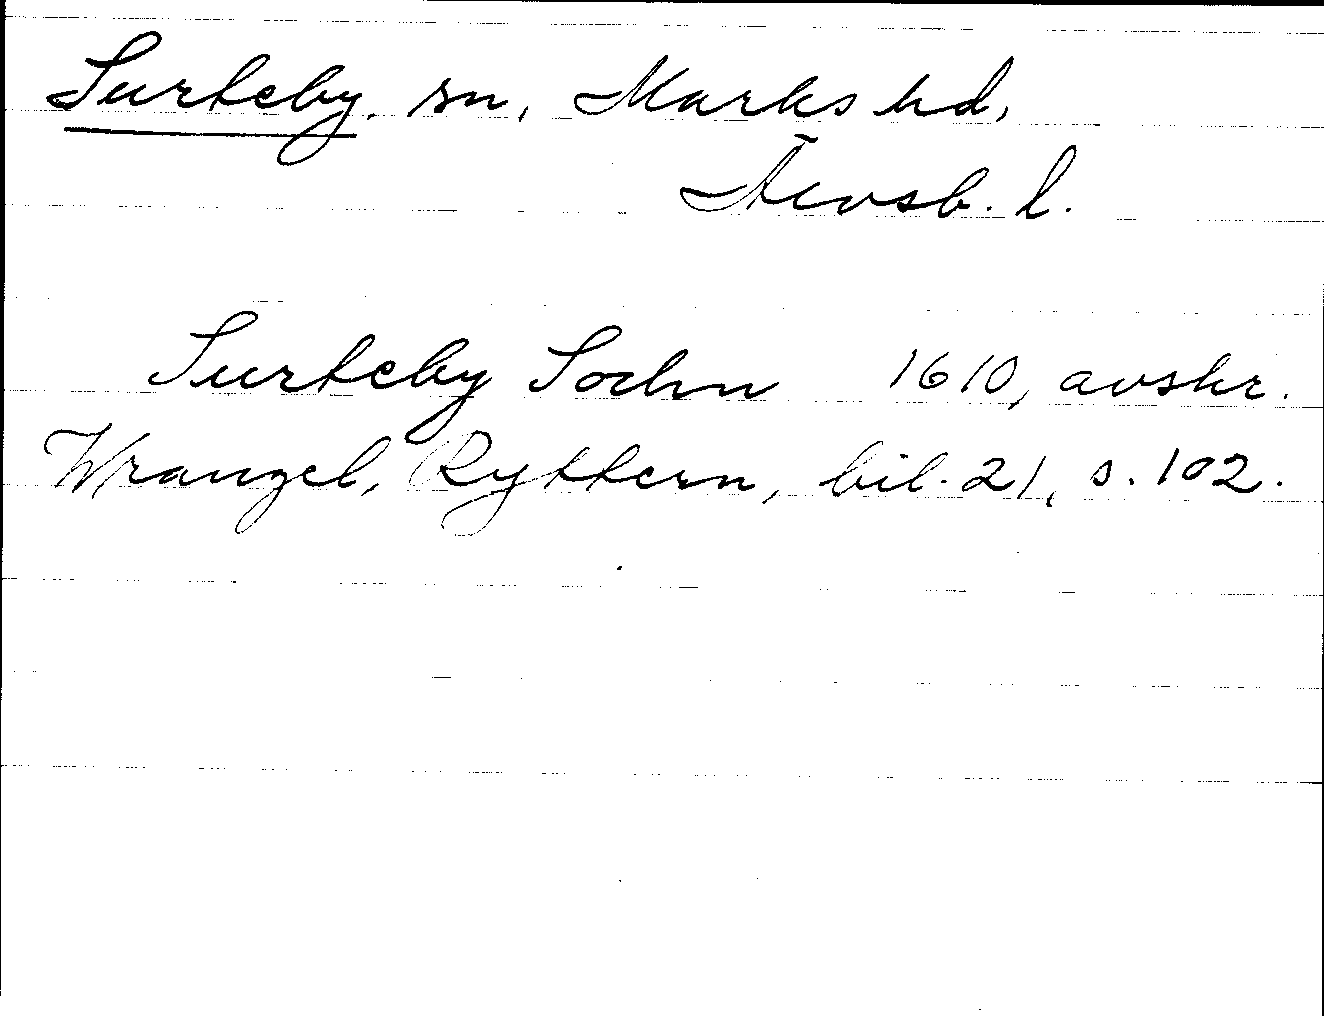 Surteby, sn, Marks hd,
Älvsb. l.
Surteby Sochn 1610, avskr.
Wrangel, Ryttern, bil. 21, s. 102.